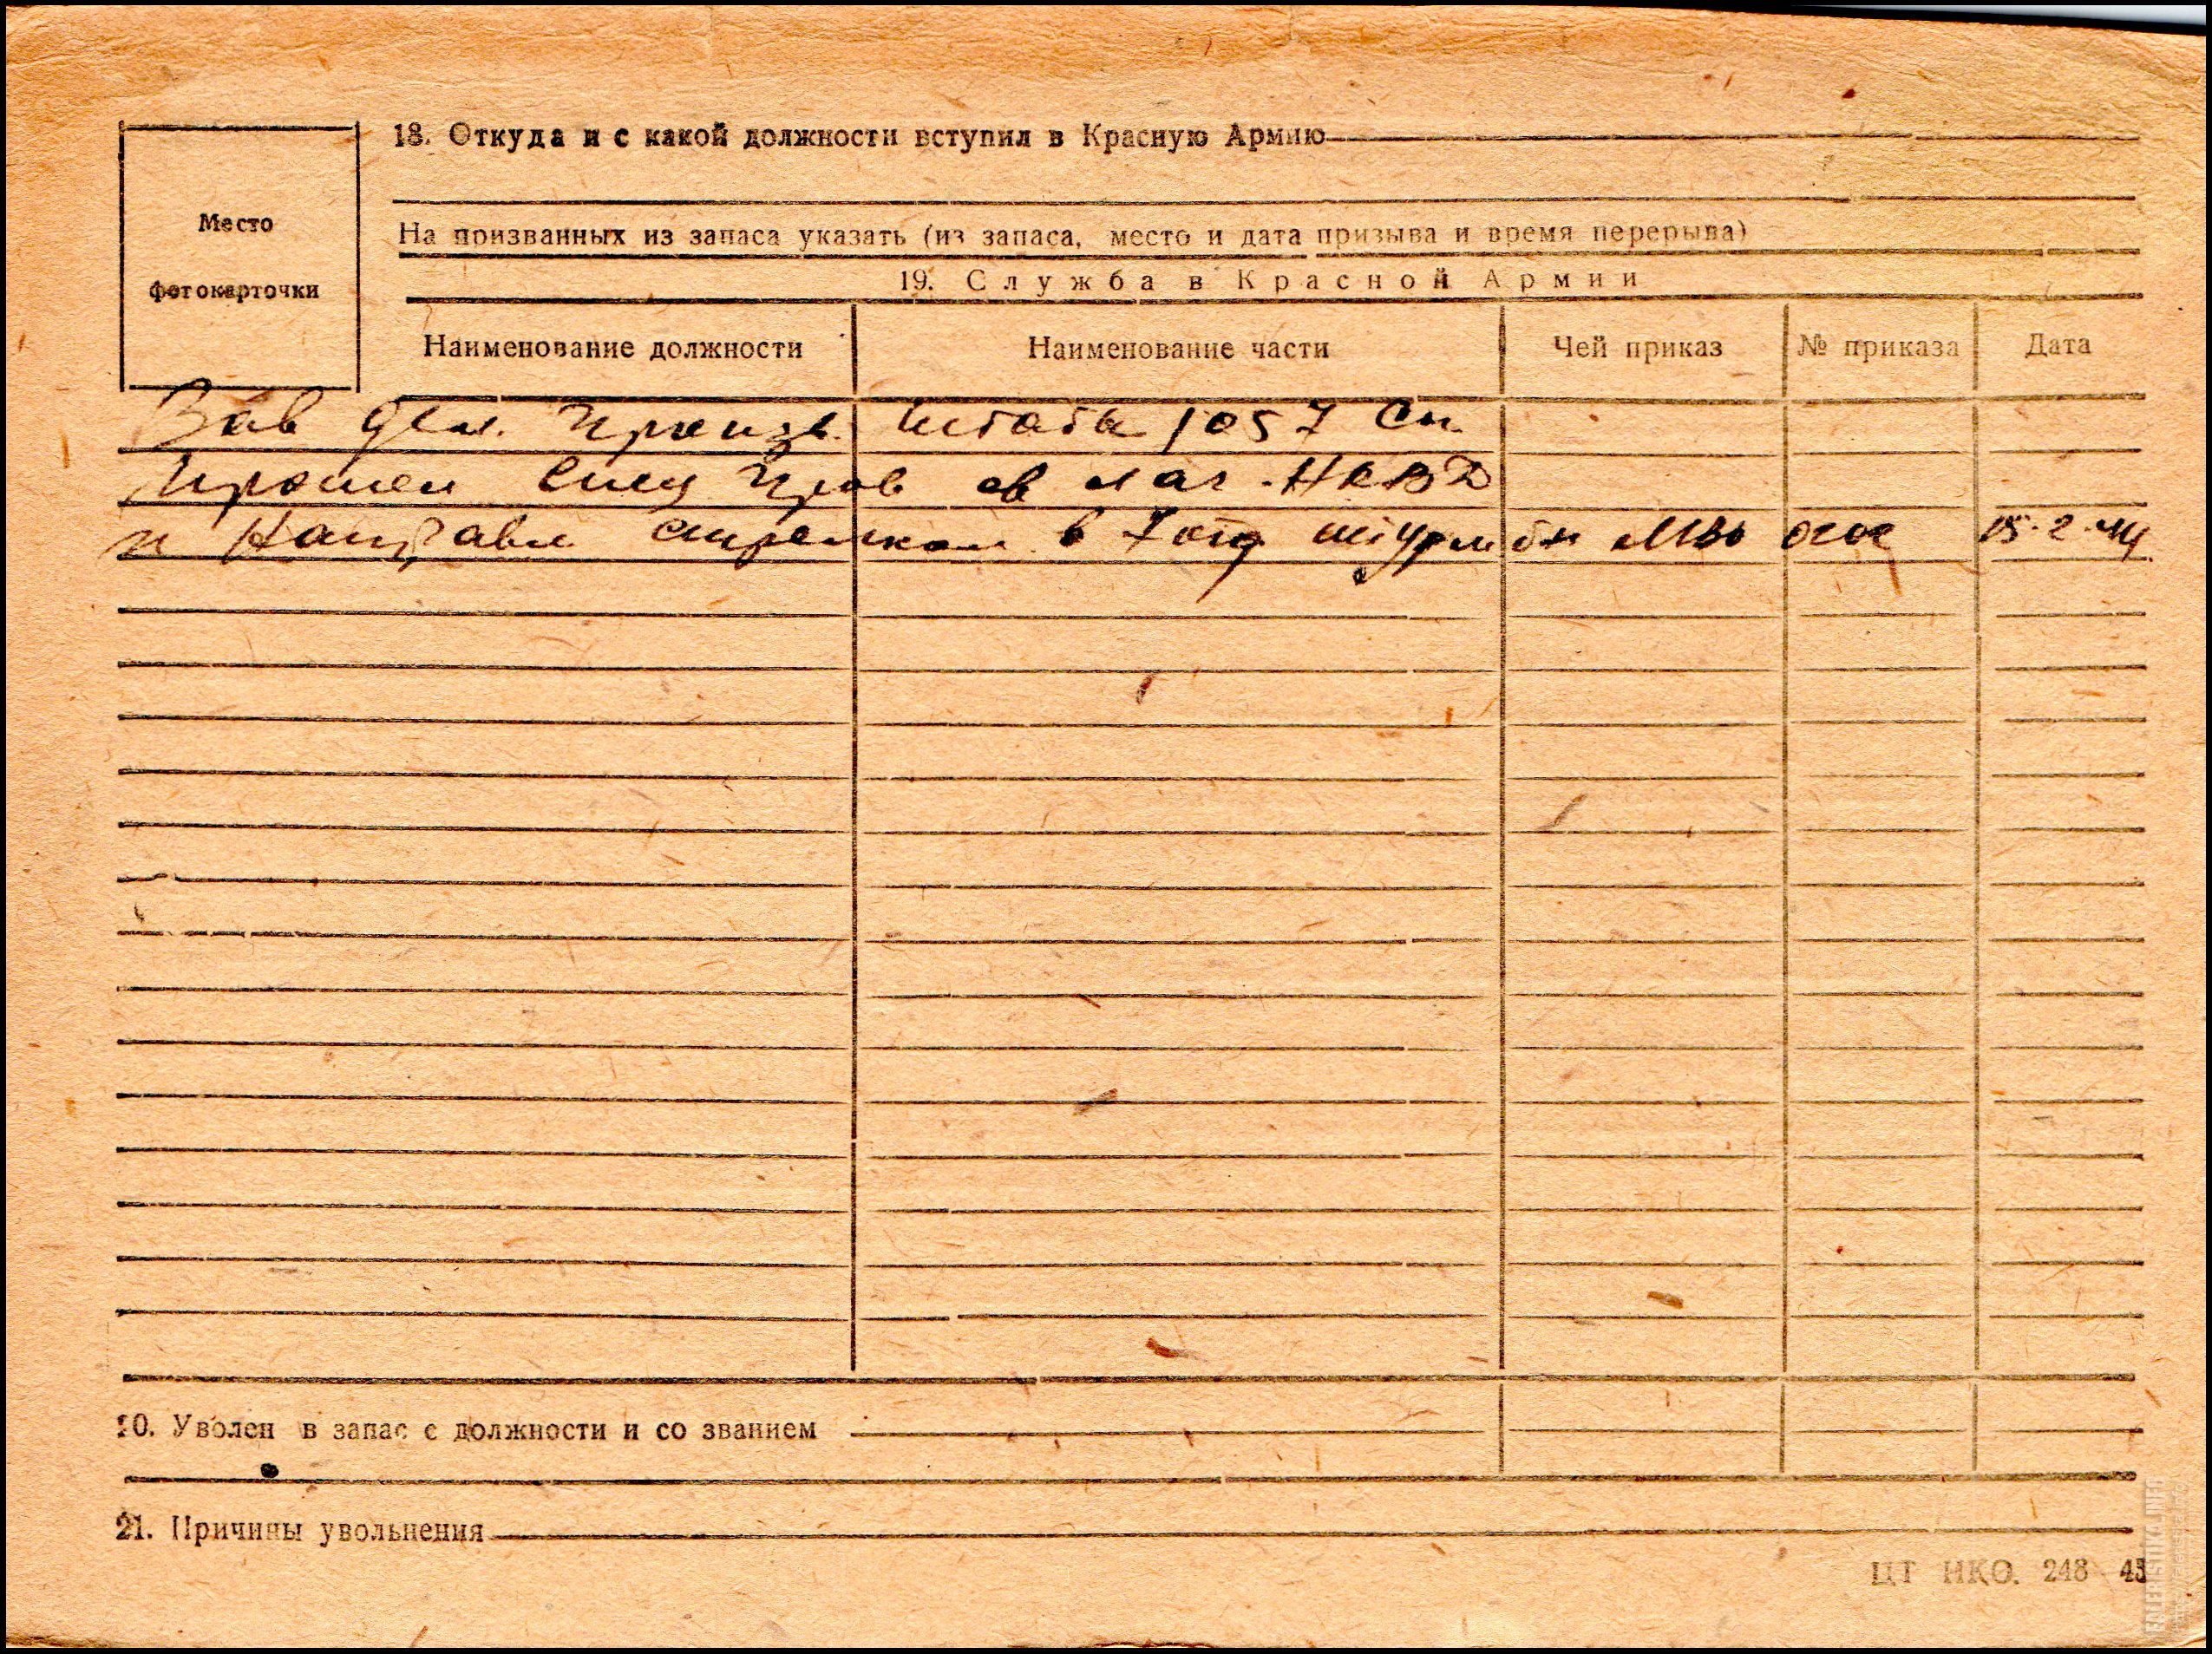 18. Откуда и с какой должности вступил в Красную Армию
Место
фотокарточки
На призванных из запаса указать (из запаса, место и дата призыва и время перерыва)
19. Служба в Красной Армии
Наименование должности Наименование части Чей приказ № приказа Дата
Зав дел. произв. штаба 1057 Сп.
Прошел спец пров ов лаг. НКВД
и Направл стрелком в 7 отд штурм бн МВО 0202 15.2.44
20. Уволен в запас с должности и со званием
21. Причины увольнения
ЦТ НКО. 248 43
FALERISTIKA.INFO